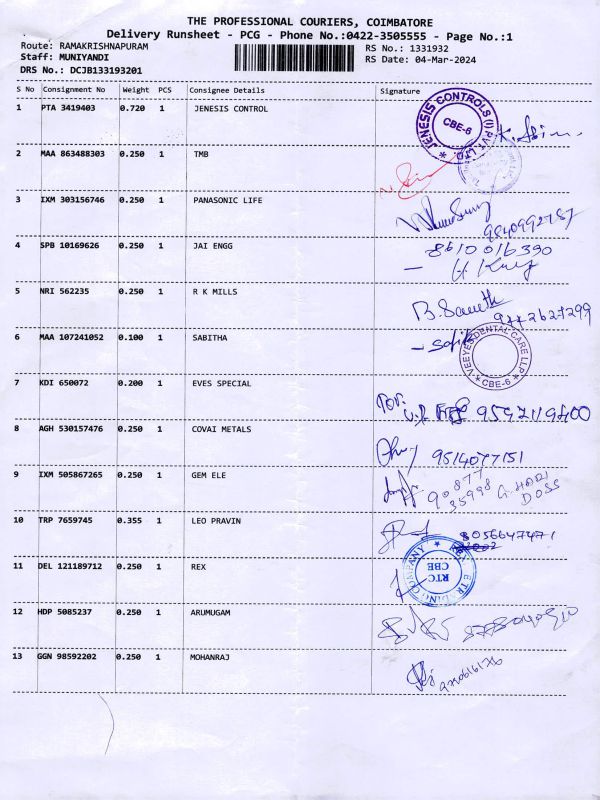 THE PROFESSIONAL COURIERS, COIMBATORE
Delivery Runsheet - PCG - Phone No.:0422-3505555 - Page No.:1
Route: RAMAKRISHNAPURAM RS No.: 1331932
Staff: MUNIYANDI RS Date: 04-Mar-2024
DRS No.: DCJB133193201
S No Consignment No Weight PCS Consignee Details Signature
1 PTA 3419403 0.720 1 JENESIS CONTROL
JENESIS CONTROLS (I) PVT. LTD. * CBE-6
2 MAA 863488303 0.250 1 TMB
3 IXM 303156746 0.250 1 PANASONIC LIFE
9840992787
4 SPB 10169626 0.250 1 JAI ENGG 8610016390
5 NRI 562235 0.250 1 R K MILLS
B. Sarath 9442627299
6 MAA 107241052 0.100 1 SABITHA
VEEYES DENTAL CARE LLP * CBE-6 *
7 KDI 650072 0.200 1 EVES SPECIAL
9597119400
8 AGH 530157476 0.250 1 COVAI METALS
9514077151
9 IXM 505867265 0.250 1 GEM ELE
90877 35998 G. HARI DOSS
10 TRP 7659745 0.355 1 LEO PRAVIN
8056647471
11 DEL 121189712 0.250 1 REX
REX TRADING COMPANY * RTC CBE
12 HDP 5085237 0.250 1 ARUMUGAM
13 GGN 98592202 0.250 1 MOHANRAJ